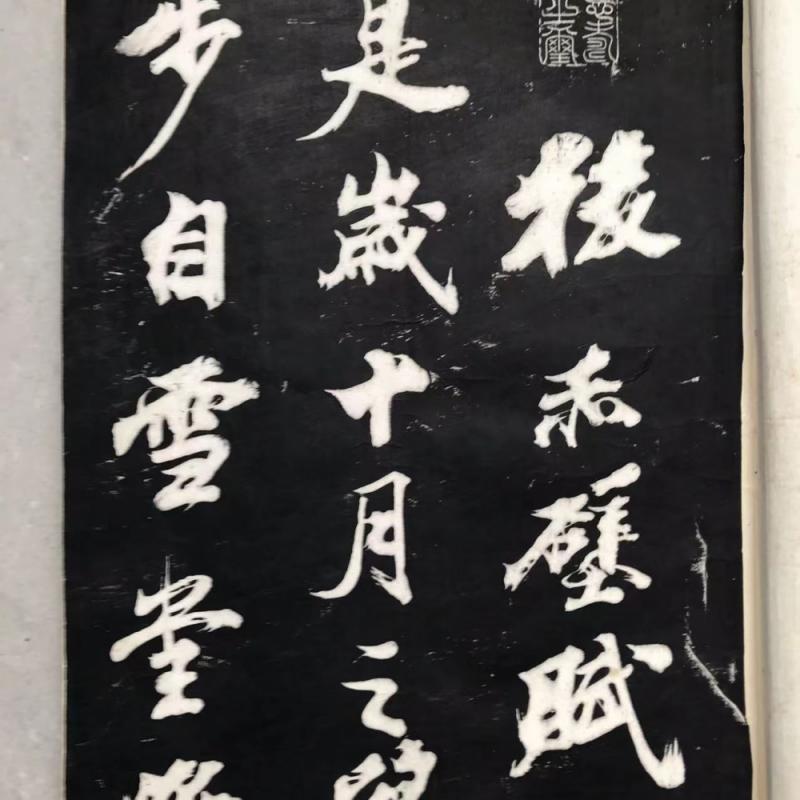 後赤壁賦
是歲十月之望
步自雪堂將